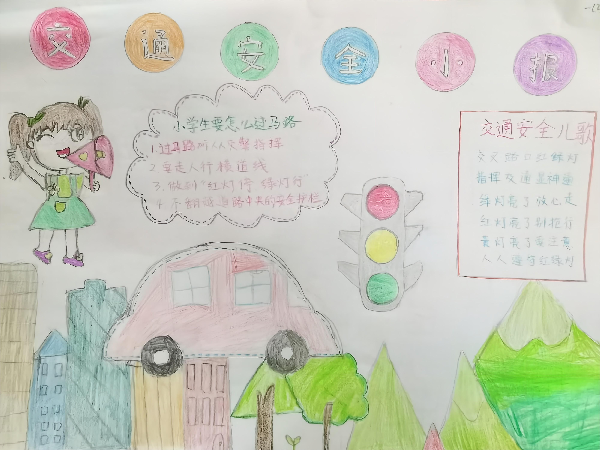 交通安全小报
小学生要怎么过马路
1.过马路听从交警指挥
2.要走人行横道线
3.做到"红灯停 绿灯行"
4.不翻越道路中央的安全护栏
交通安全儿歌
交叉路口红绿灯
指挥交通显神通
绿灯亮了放心走
红灯亮了别抢行
黄灯亮了要注意
人人遵守红绿灯